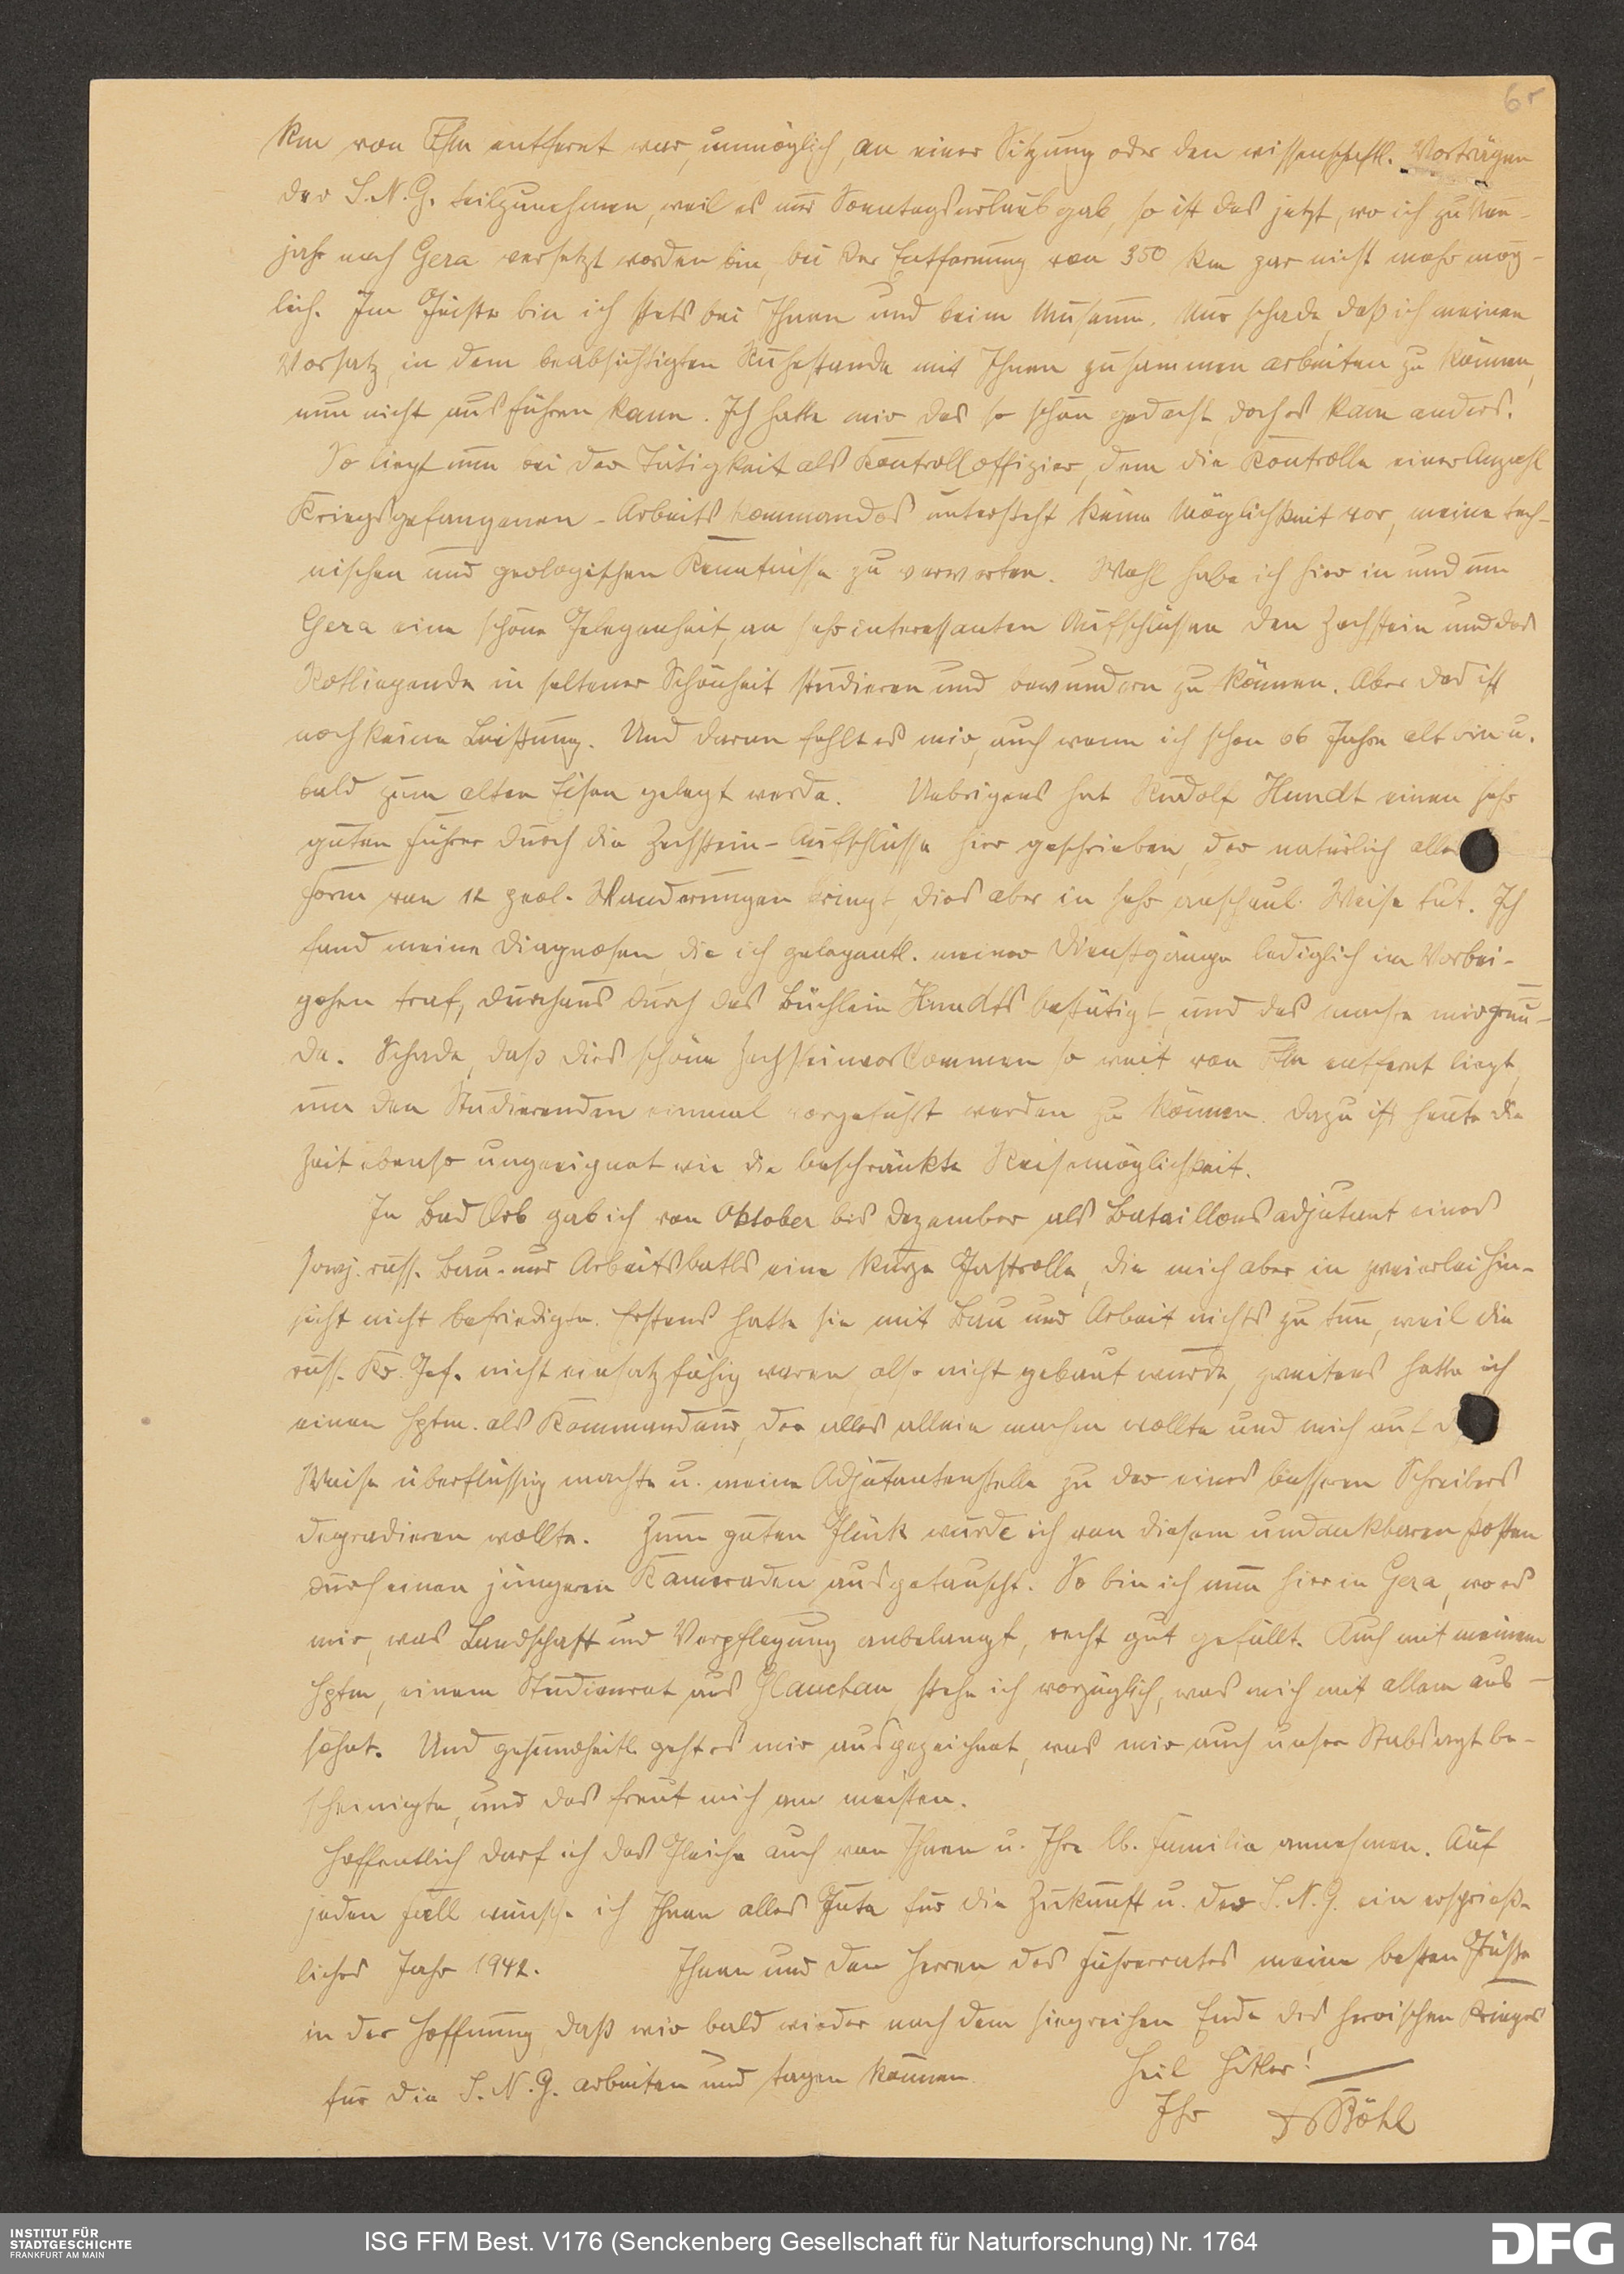 6r
km von Ffm entfernt war, unmöglich, an einer Sitzung oder den wissenschaftl. Vorträgen
der S.N.G. teilzunehmen, weil es nur Sonntagsurlaub gab, so ist das jetzt, wo ich zu Neu-
jahr nach Gera versetzt worden bin, bei der Entfernung von 350 km gar nicht mehr mög-
lich. Im Geiste bin ich stets bei Ihnen und beim Museum. Nur schade, daß ich meinen
Vorsatz, in dem beabsichtigten Ruhestande mit Ihnen zusammen arbeiten zu können,
nun nicht ausführen kann. Ich hatte mir das so schön gedacht, doch es kam anders.
So liegt nun bei der Tätigkeit als Kontrolloffizier, dem die Kontrolle einer Anzahl
Kriegsgefangenen-Arbeitskommandos untersteht keine Möglichkeit vor, meine tech-
nischen und geologischen Kenntnisse zu verwerten. Wohl habe ich hier in und um
Gera eine schöne Gelegenheit, an sehr interessanten Aufschlüssen den Zechstein und das
Rotliegende in seltener Schönheit studieren und bewundern zu können. Aber das ist
noch keine Leistung. Und daran fehlt es mir, auch wenn ich schon 66 Jahre alt bin u.
bald zum alten Eisen gelegt werde. Uebrigens hat Rudolf Hundt einen sehr
guten Führer durch die Zechstein-Aufschlüsse hier geschrieben, der natürlich alle
Form von 12 geol. Wanderungen bringt, dies aber in sehr anschaul. Weise tut. Ich
fand meine Diagnosen, die ich gelegentl. meiner Dienstgänge lediglich im Vorbei-
gehen traf, durchaus durch das Büchlein Hundts bestätigt und das machte mir Freu-
de. Schade, daß dies schöne Zechsteinvorkommen so weit von Ffm entfernt liegt,
um den Studierenden einmal vorgeführt werden zu können. Dazu ist heute die
Zeit ebenso ungeeignet wie die beschränkte Reisemöglichkeit.
In Bad Orb gab ich von Oktober bis Dezember als Bataillonsadjutant eines
sowj. russ. Bau- und Arbeitsbatls eine kurze Gastrolle, die mich aber in zweierlei Hin-
sicht nicht befriedigte. Erstens hatte sie mit Bau und Arbeit nichts zu tun, weil die
russ. Kr. Gef. nicht einsatzfähig waren, also nicht gebaut wurde, zweitens hatte ich
einen Hptm. als Kommandeur, der alles allein machen wollte und mich auf d
Weise überflüssig machte u. meine Adjutantenstelle zu der eines besseren Schreibers
degradieren wollte. Zum guten Glück wurde ich von diesem undankbaren Posten
durch einen jüngeren Kameraden ausgetauscht. So bin ich nun hier in Gera, wo es
mir, was Landschaft und Verpflegung anbelangt, recht gut gefällt. Auch mit meinem
Hptm, einem Studienrat aus Glauchau, stehe ich vorzüglich, was mich mit allem aus-
söhnt. Und gesundheitl. geht es mir ausgezeichnet, was mir auch unser Stabsarzt be-
scheinigte, und das freut mich am meisten.
Hoffentlich darf ich das Gleiche auch von Ihnen u. Ihre lb. Familie annehmen. Auf
jeden Fall wünsche ich Ihnen alles Gute für die Zukunft u. der S.N.G. ein ersprieß-
liches Jahr 1942. Ihnen und den Herren des Führerrates meine besten Grüße
in der Hoffnung, daß wir bald wieder nach dem siegreichen Ende des heroischen Krieges
für die S.N.G. arbeiten und tagen können. Heil Hitler!
Ihr Dr Böhl
INSTITUT FÜR
STADTGESCHICHTE
FRANKFURT AM MAIN
ISG FFM Best. V176 (Senckenberg Gesellschaft für Naturforschung) Nr. 1764
DFG